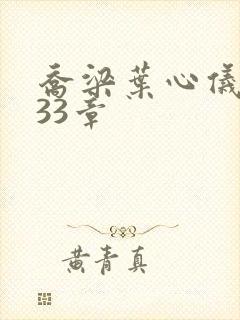 乔梁葉心儀
33章
黄青真